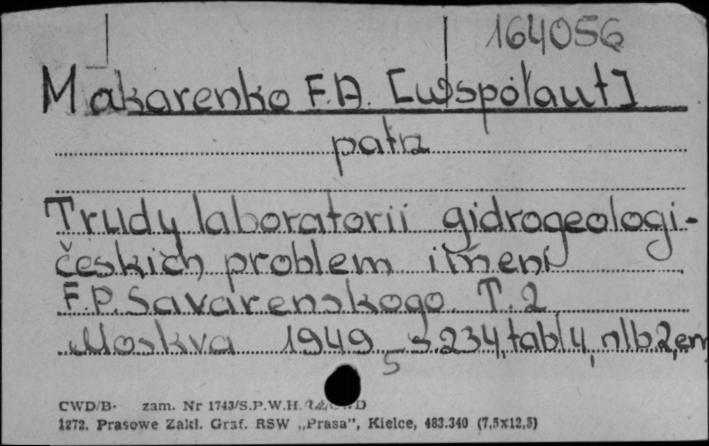 164056
Makarenko F.A. [współaut]
patrz
Trudy laboratorii gidrogeologi-
českich problem imeni
F.P. Savarenskogo. T.2
Moskva 1949 s 234, tabl 4, nlb 2, err
5
CWD/B- zam. Nr 1743/S.P.W.H.
1272. Prasowe Zakł. Graf. RSW „Prasa”, Kielce, 483.340 (7,5x12,5)